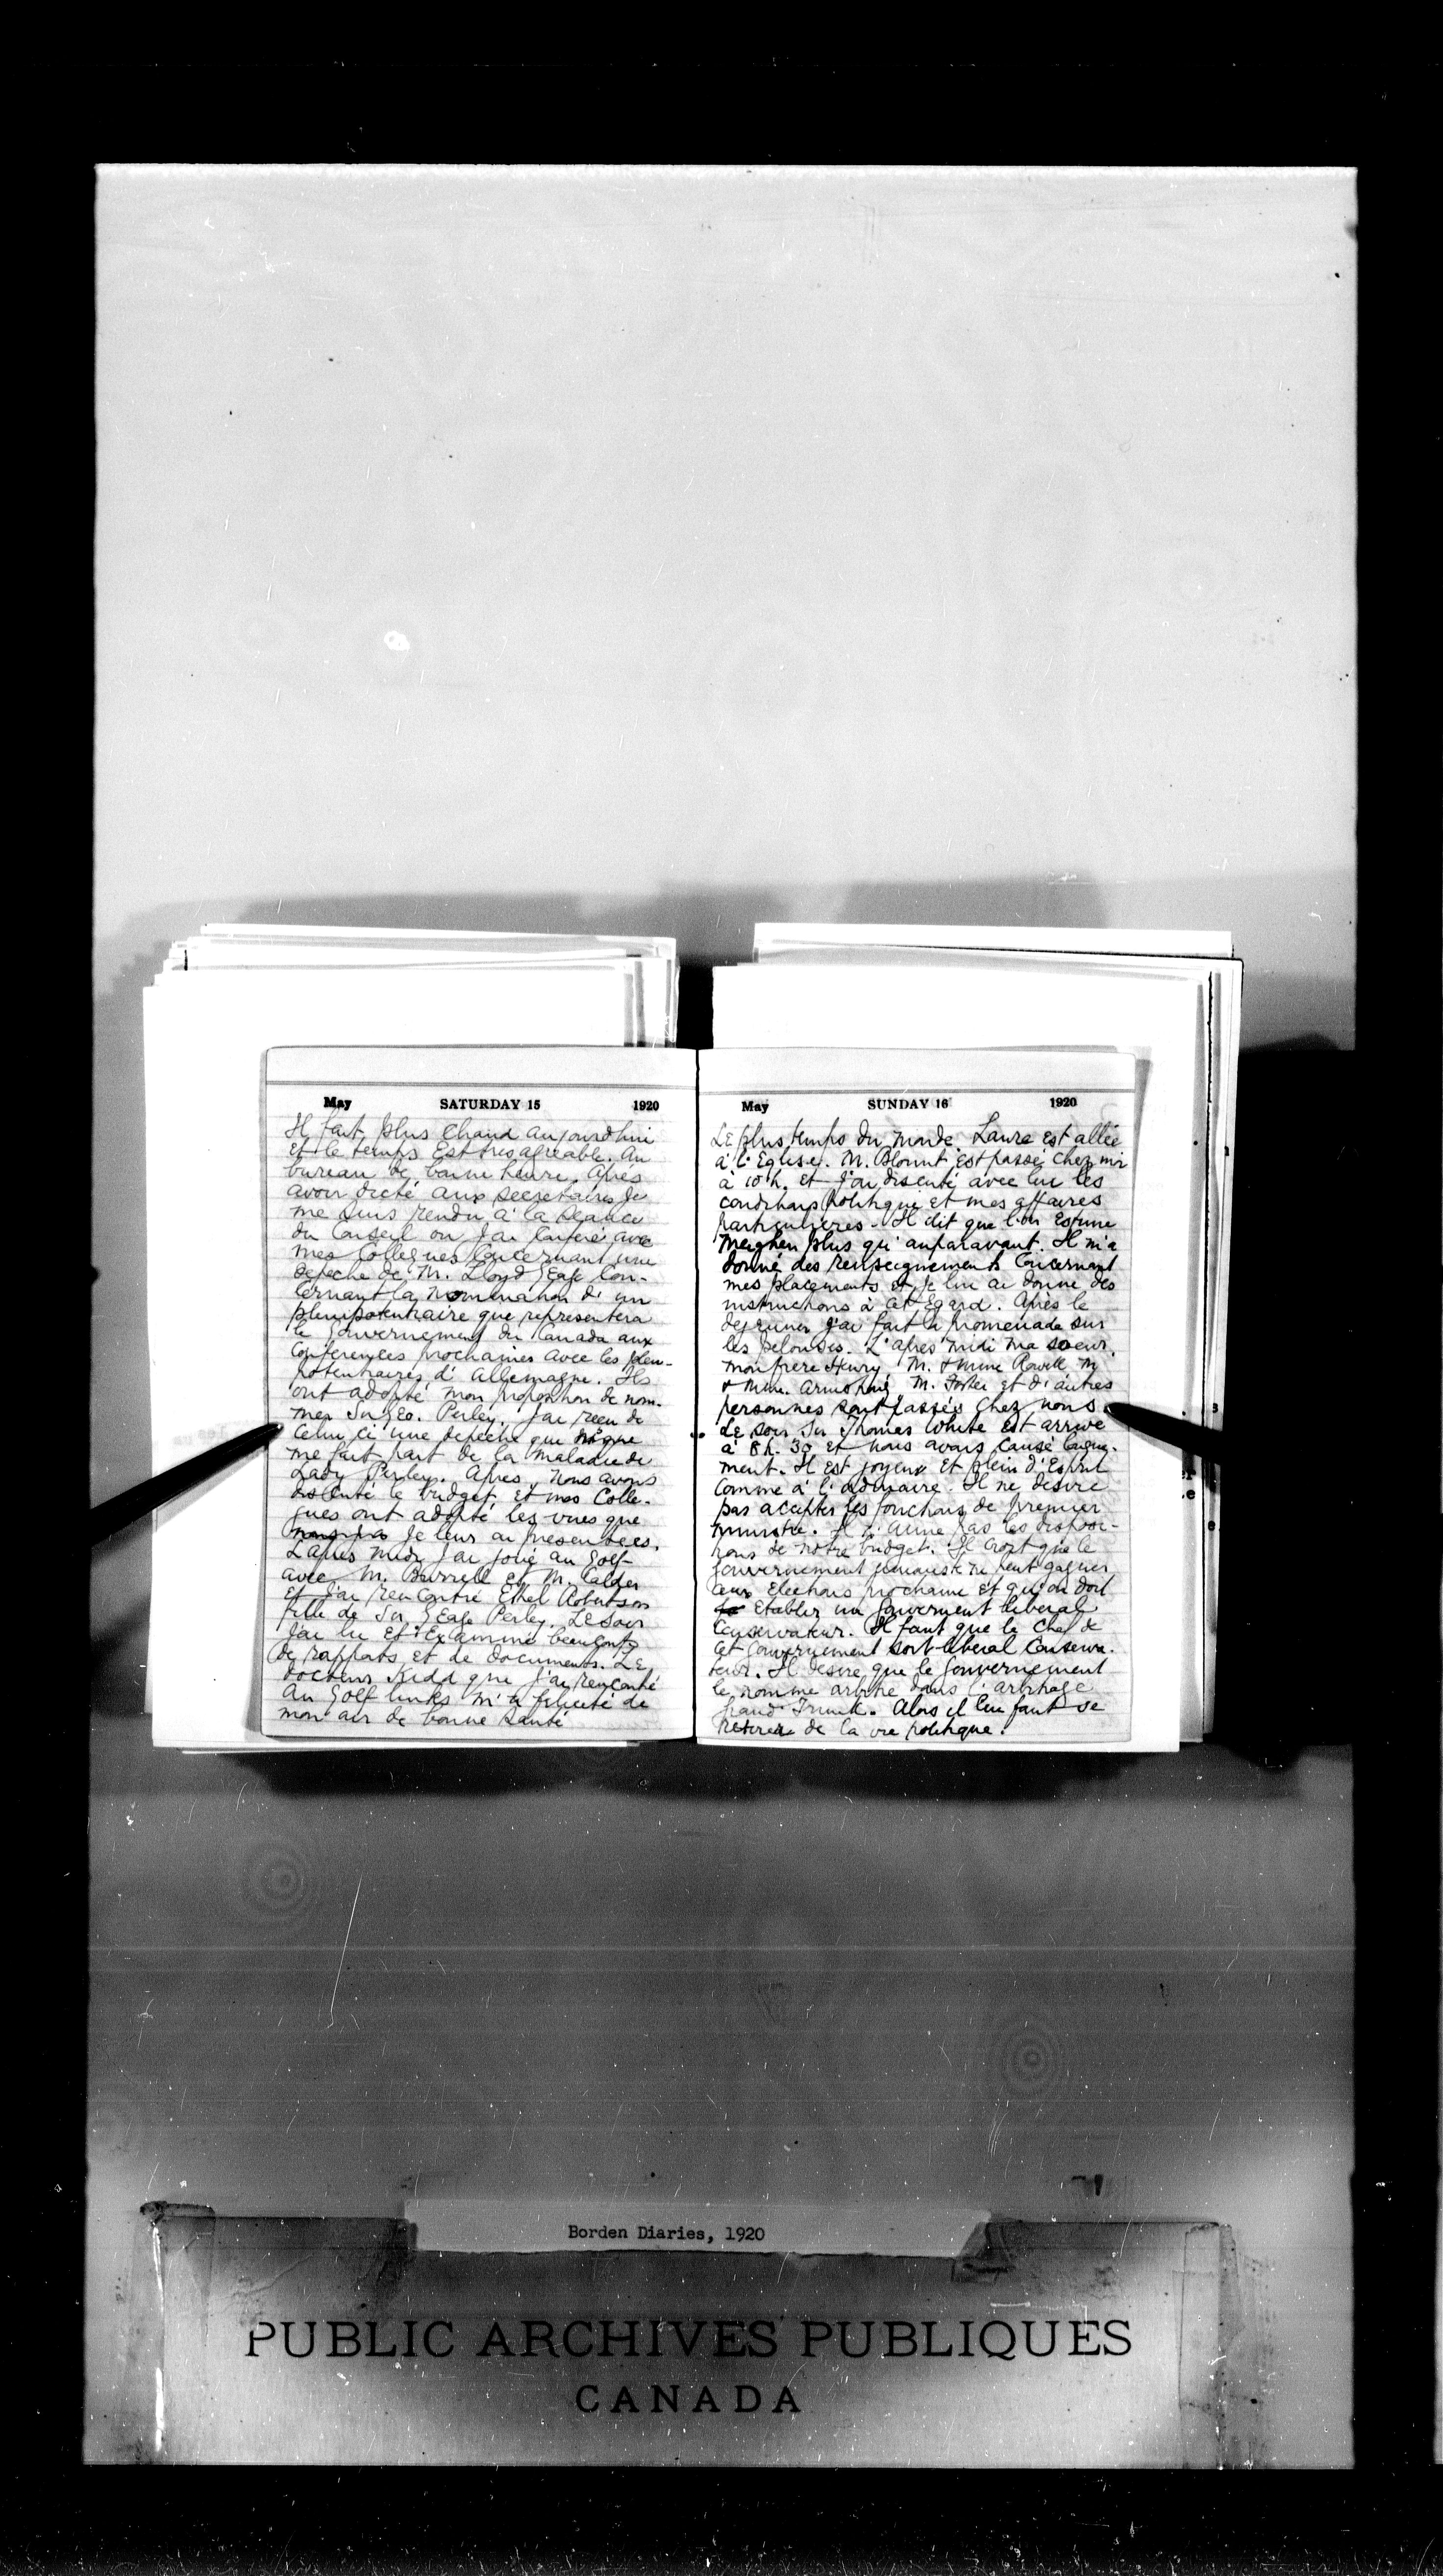 May SATURDAY 15 1920
Il fait plus chaud aujourdhui
et le temps est tres agreable. Au
bureau de bonne heure. Apres
avoir dicté aux secretaires je
me suis rendu à la seance
du Conseil ou j'ai conferé avec
mes Collegues concernant une
depeche de M. Lloyd George con-
cernant la nomination d'un
plenipotentiaire que representera
le gouvernement du Canada aux
Conferences prochaines avec les pleni-
potentiaires d'Allemagne. Ils
ont adopté mon proposition de nom-
mer Sir Geo. Perley. J'ai recu de
celui ci une depeche qui
me fait part de la maladie de
Lady Perley. Apres, nous avons
discuté le budget et mes Colle-
gues ont adopté les vues que
je leur ai presentees.
L'apres midi j'ai joué au golf
avec M. Burrell et M. Calder
et j'ai rencontré Ethel Robertson
fille de Sir George Perley. Le soir
j'ai lu et examiné beaucoup
de rapports et de documents. Le
docteur Kidd que j'ai rencontré
au golf links m'a felicité de
mon air de bonne santé
May SUNDAY 16 1920
Le plus temps du monde. Laura est allée
à l'Eglise. M. Blount est passé chez moi
à 10 h. et j'ai discuté avec lui les
conditions politique et mes affaires
particulieres. Il dit que l'on estime
Meighen plus qu'auparavant. Il m'a
donné des renseignements concernant
mes placements et je lui ai donne des
instructions à cet egard. Après le
dejeuner j'ai fait la promenade sur
les pelouses. L'apres midi ma soeur,
mon frere Henry M. & Mme Rowell M
& Mme. M. Foster et d'autres
personnes sont passés chez nous.
Le soir Sir Thomas White est arrivé
à 8 h. 30 et nous avons causé longue-
ment. Il est joyeux et plein d'Esprit
comme à l'ordinaire. Il ne desire
pas accepter les fonctions de premier
ministre. Il n'aime pas les disposi-
tions de notre budget. Il croit que le
gouvernement unioniste ne peut gagner
aux elections prochaine et qu'on doit
etablir un gouverment liberal
Conservateur. Il faut que le Chef de
cet gouvernement soit liberal Conserva-
teur. Il desire que le gouvernement
le nomme arbitre dans l'arbitrage
Grand Trunk. Alors il lui faut se
retirer de la vie politique.
Borden Diaries, 1920
PUBLIC ARCHIVES PUBLIQUES
CANADA